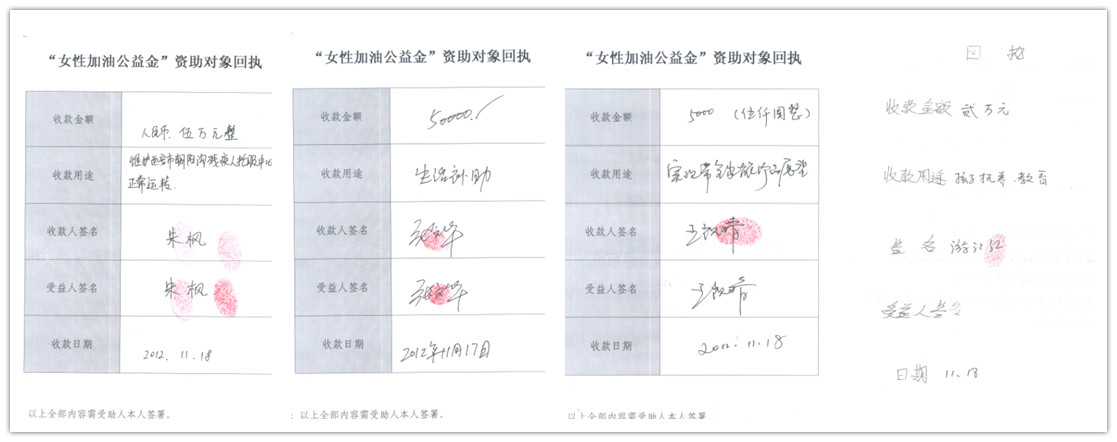 “女性加油公益金”资助对象回执
收款金额
人民币 伍万元整
收款用途
维护西安市朝阳沟残疾人托服中心
正常运转
收款人签名
朱枫
受益人签名
朱枫
收款日期
2012. 11. 18
以上全部内容需受助人本人签署。
“女性加油公益金”资助对象回执
收款金额
50000.
收款用途
生活补助
收款人签名
受益人签名
收款日期
2012年11月17日
: 以上全部内容需受助人本人签署。
“女性加油公益金”资助对象回执
收款金额
5000 (伍仟圆整)
收款用途
实现带全家旅行的愿望
收款人签名
受益人签名
收款日期
2012. 11. 18
以上全部内容需受助人本人签署。
回 执
收款金额 贰万元
收款用途 孩子抚养、教育
签名 游江红
受益人签名
日期 11. 18